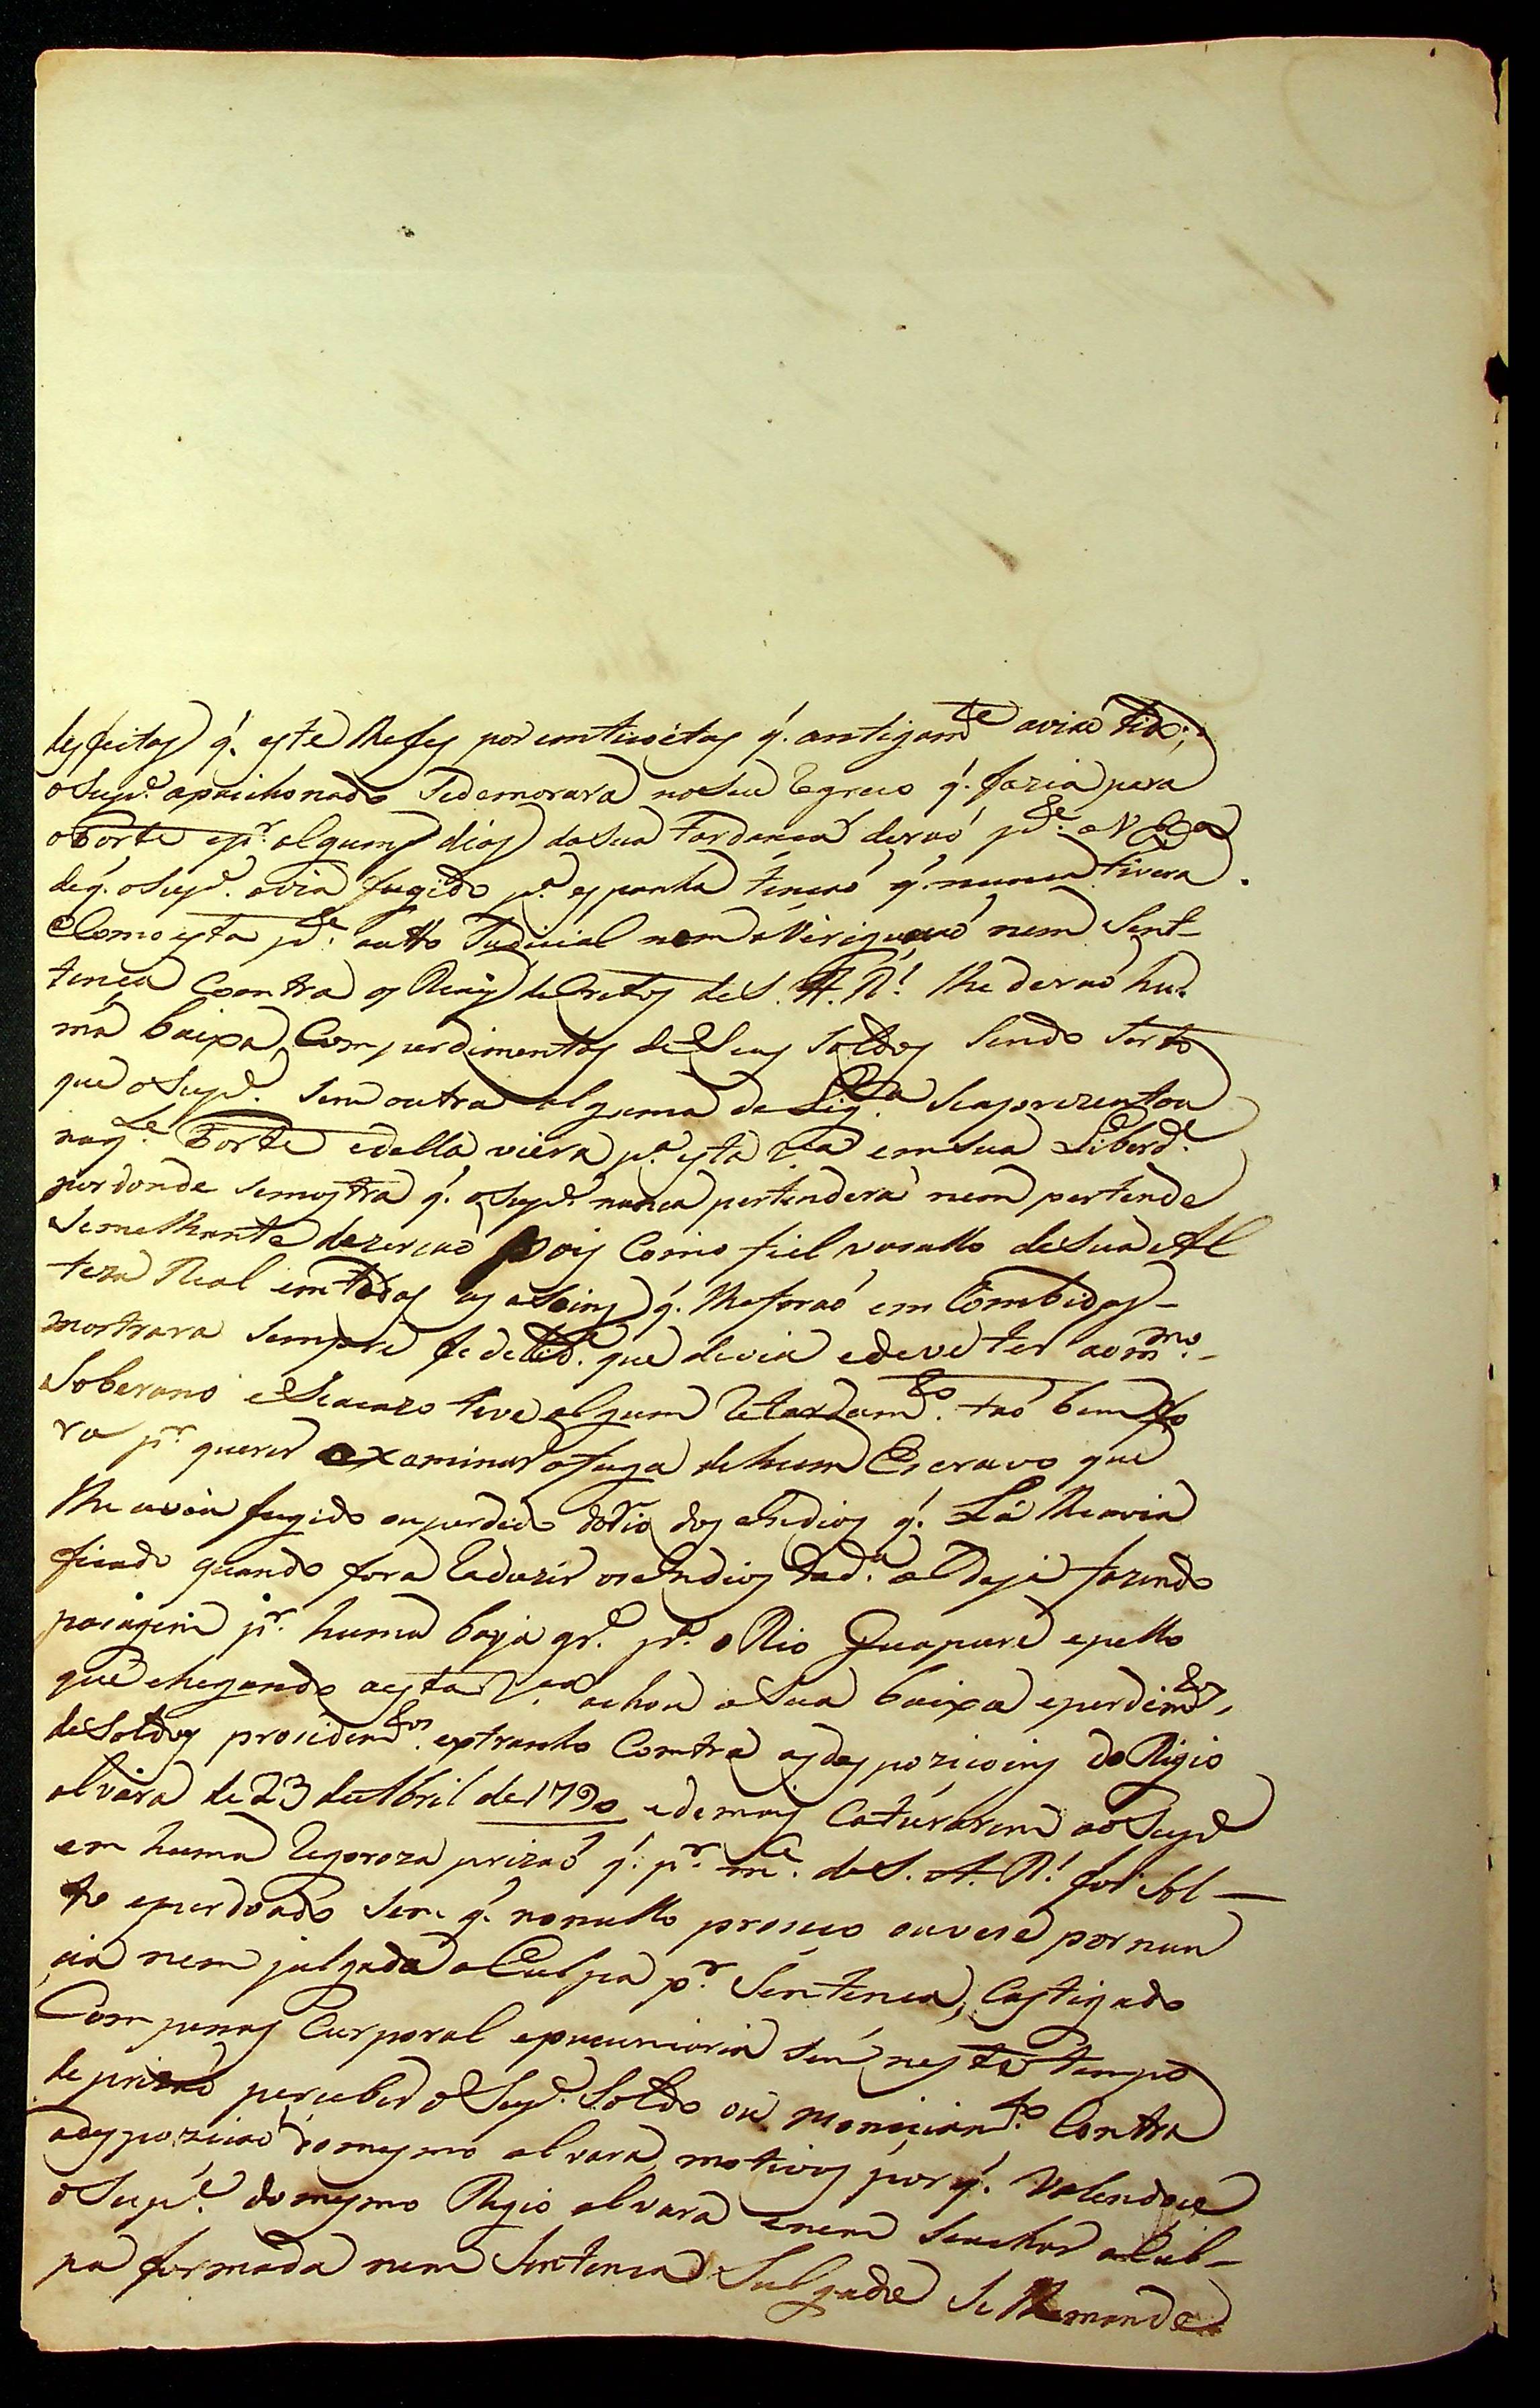 desfeitas q. este lhe fes por emtiricetas q. antigamde avia tido;
o Supd.e apaichonado sedemorara no seu Regreco q. fazia para
o Forte e pr. alguns dias da Sua Tardanca deraó pde. a
de q. o Supd. avia fugido pa. espanha tencaó q. nunca tivera.
e Como esta pde. autto Judicial nem aViriguacaó nem Sent-
tenca Contra os Reais decretos de S. A. R! lhe deraó hu.
ma baixa, Com perdimentos de Seus Soldos Sendo Serto
que o Supd. Sem outra alguma deLiga. Seaprezentou
naqle. Forte e della viera pa. esta Va. em sua Liberde.
por donde se mostra q. o Supde. nunca pertendera nem pertende
Semelhante dezercaó pois Como fiel vasallo de Sua Al
teza Real em todas as asoins q. lhe foraó em Combidas-
mostrara sempre fedelide. que devia e deve ter ao mmo.-
Soberano e Seacazo teve algum Retardamto. taó bem fo
ra pr. querer examinar a fuga de hum Escravo que
lhe avia fugido ou perdido do Rio dos Indios q. Lá lhe avia
ficado quando fora Reduzir os Indios da da. aldeja fazendo
pasagem pr. huma baja gde. pa. o Rio Guapure e pello
que chegando a esta Va. achou a Sua baixa e perdimtos,
de Soldos prosidemtos. extranho Contra as despozicoins do Rigio
alvara de 23 de Abril de 1790 e demais Caturarem ao Supde
em huma Regoroza prizaó q. pr. mce. de S. A. R! foi Sol-
to e perdoado Sem q. no nullo proseco ouvese pornun
cia nem julgada a Culpa pr. Sentenca, Castigado
Com penas Curporal e pucuniaria Sem neste tempo
de prizaó perceber o Supde. Soldo ou moniciamto. Contra
a despozicaó do mesmo alvara, motivos por q. Valendose
o Supe. do mesmo Regio alvara e nem Seachar a Cul-
pa formada nem Sentenca Julgada Se lhe mande